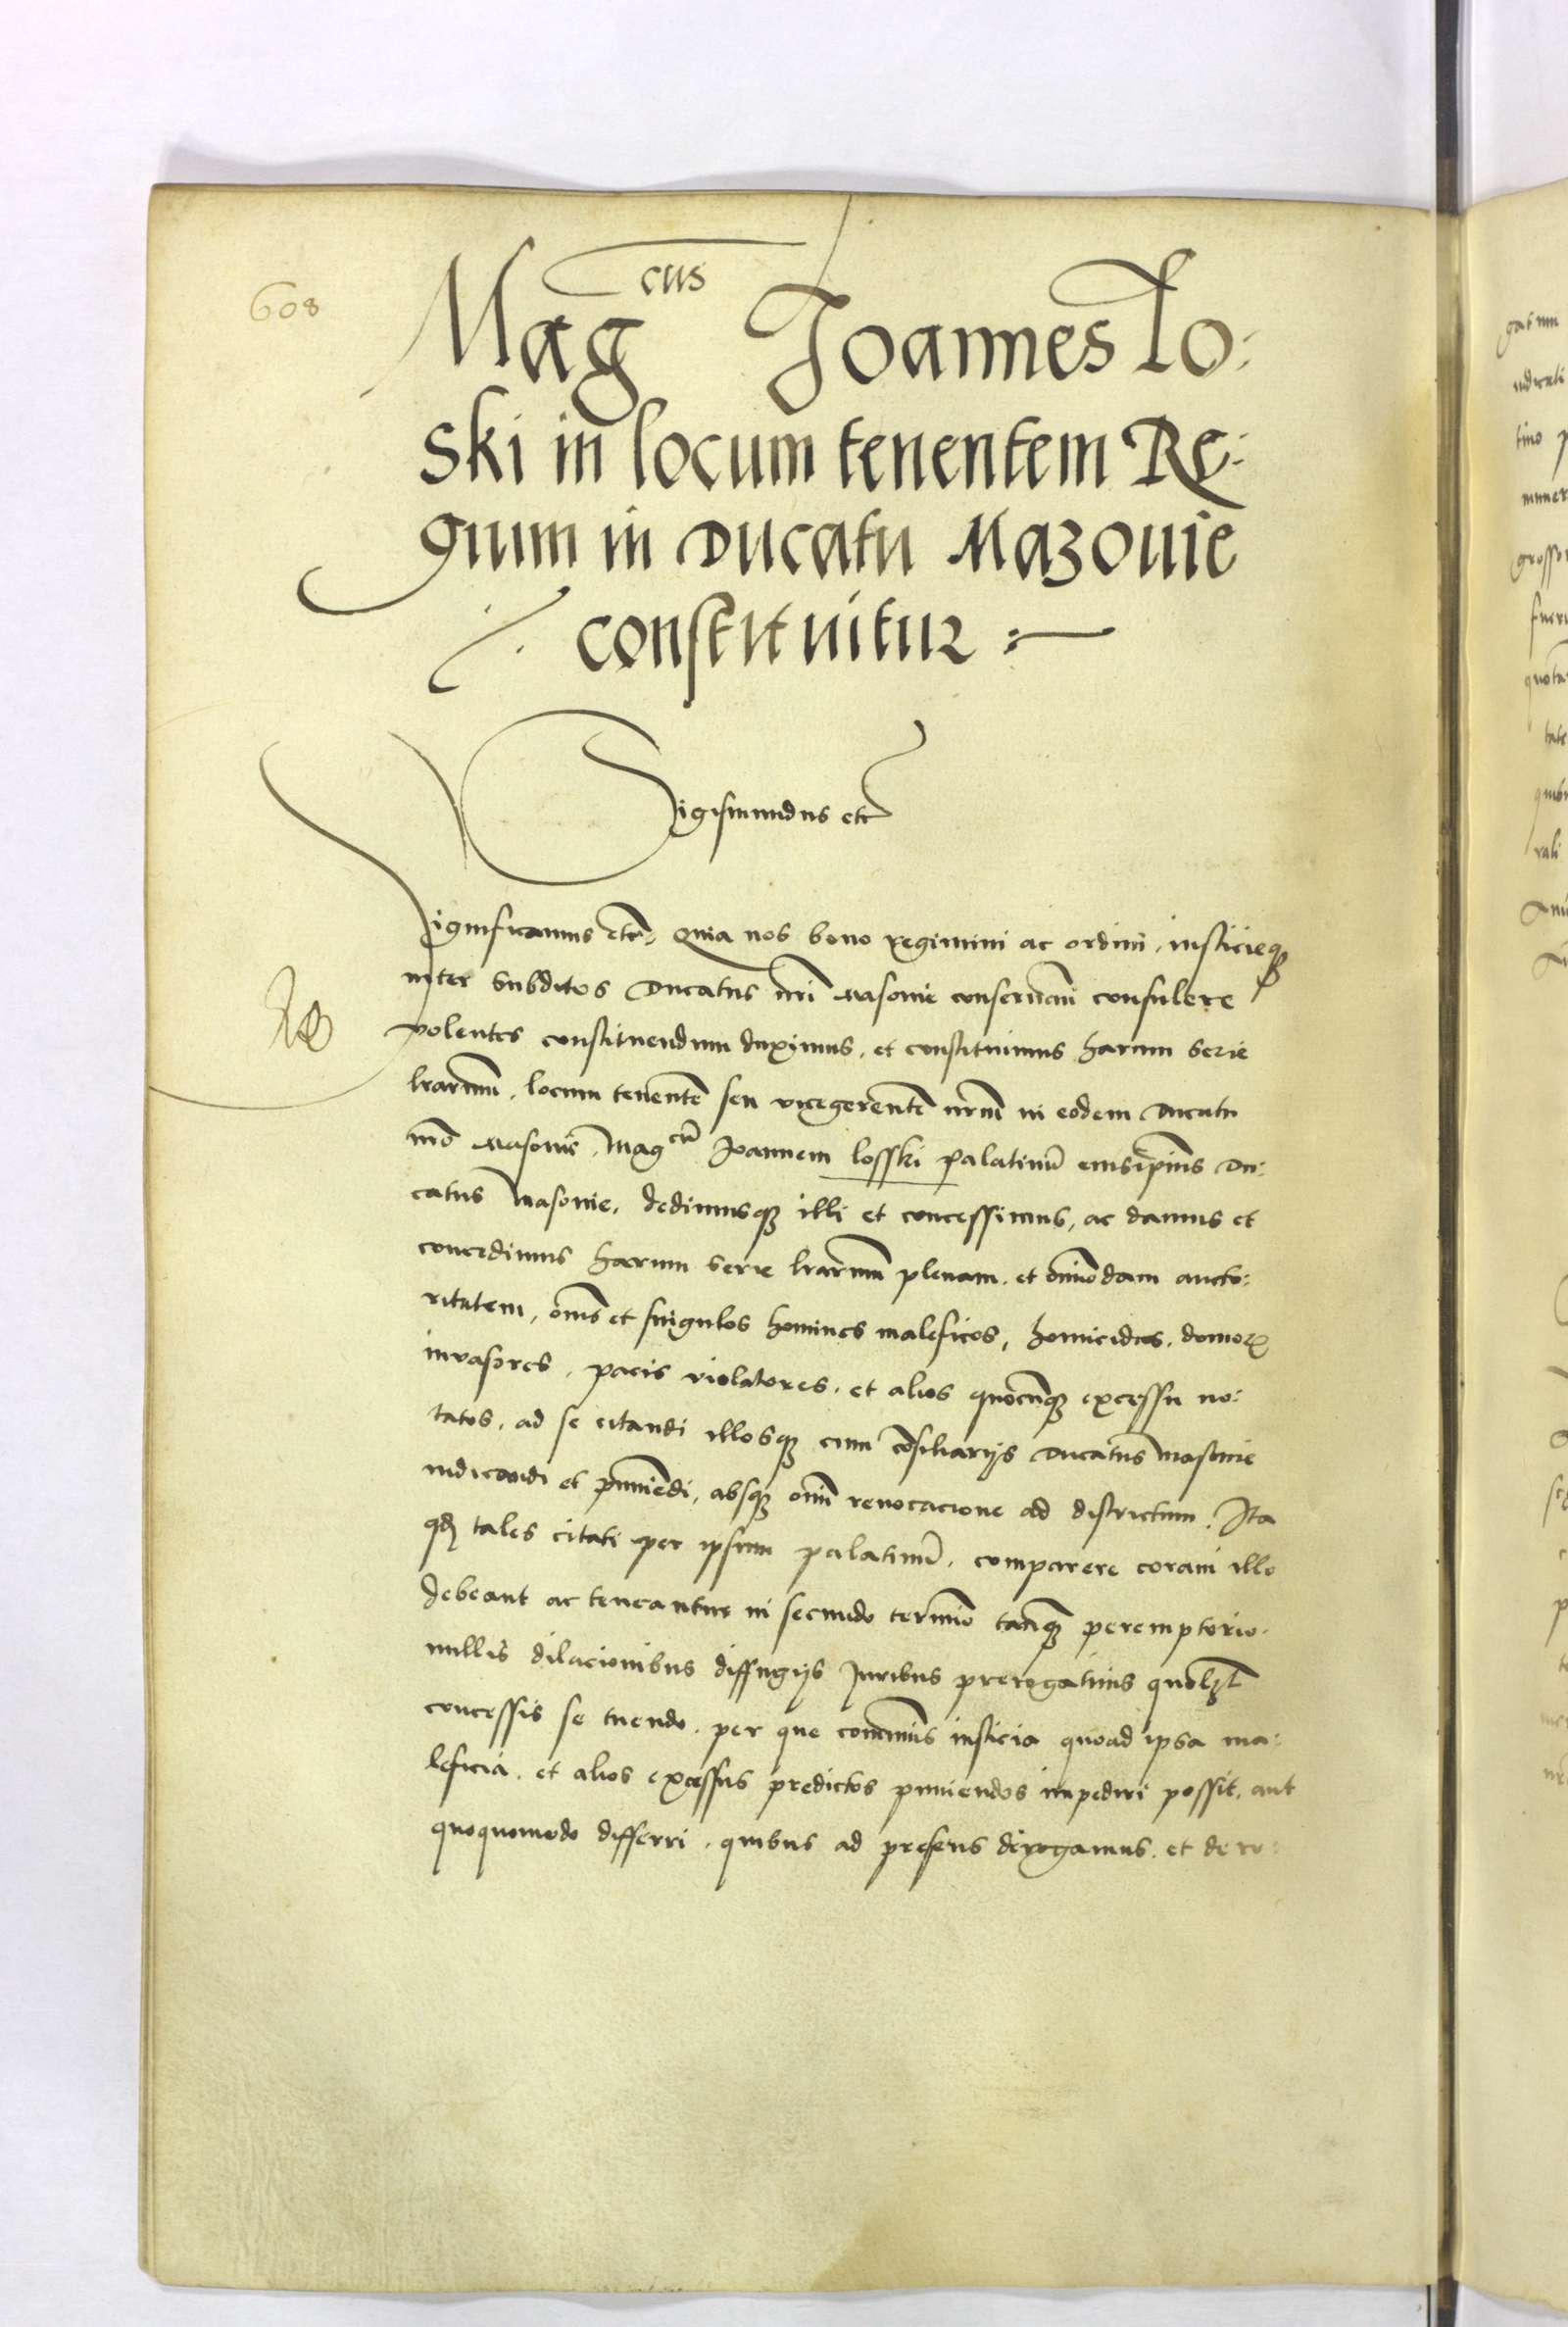 608
Mag cus Joannes Lo:
ski in locum tenentem Re:
gium in Ducatu Mazouie
constituitur :-
Sigismundus etc
Significamus etc. Quia nos bono regimini ac ordini, iusticieq3
inter subditos Ducatus nri Masouie conseruandi consulere
volentes constituendum duximus, et constituimus harum serie
lrarum, locum tenentē seu vicegerentē nrum in eodem Ducatu
nro Masouie, Mag cū Joannem losski palatinū eiusdem Du:
catus Masouie, dedimusq3 illi et concessimus, ac damus et
concedimus harum serie lrarum plenam, et omnimodam aucto:
ritatem, oms et singulos homines maleficos, homicidas, domorum
inuasores, pacis violatores, et alios quocunq3 excessu no:
tatos, ad se citandi illosq3 cum cōsiliarijs Ducatus Masouie
iudicandi et puniēdi, absq3 omni reuocacione ad districtum. Ita
qd tales citati per ipsum palatinū, comparere coram illo
debeant ac teneantur in secundo termino tanq3 peremptorio.
nullis dilacionibus diffugijs Juribus prerogatiuis quolzt
concessis se tuendo, per que communis iusticia quoad ipsa ma:
leficia, et alios excessus predictos puniendos impediri possit, aut
quoquomodo differri, quibus ad presens derogamus, et dero: